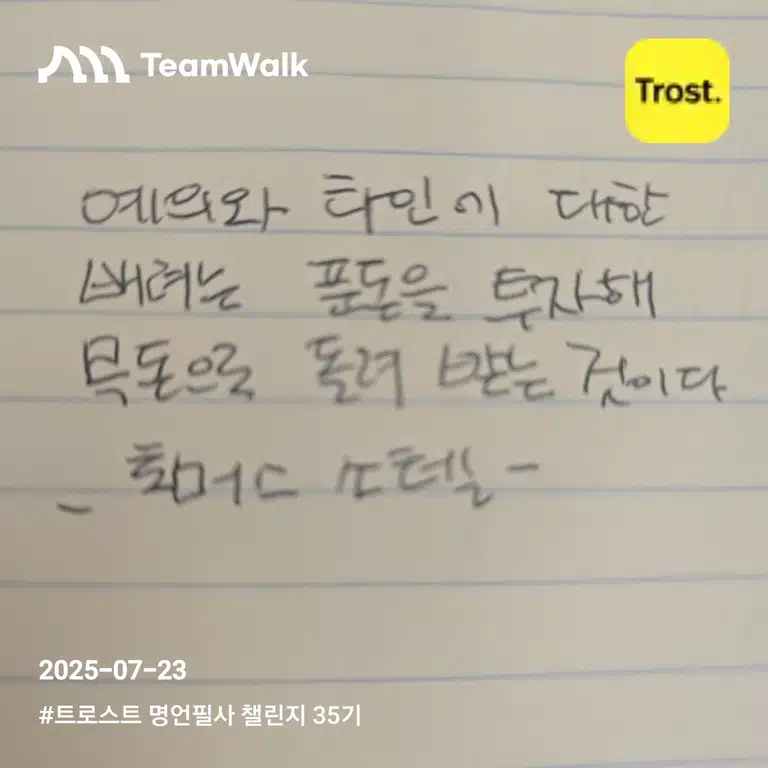 TeamWalk
Trost.
예의와 타인에 대한
배려는 푼돈을 투자해
목돈으로 돌려 받는 것이다
- 토머스 소웰 -
2025-07-23
#트로스트 명언필사 챌린지 35기